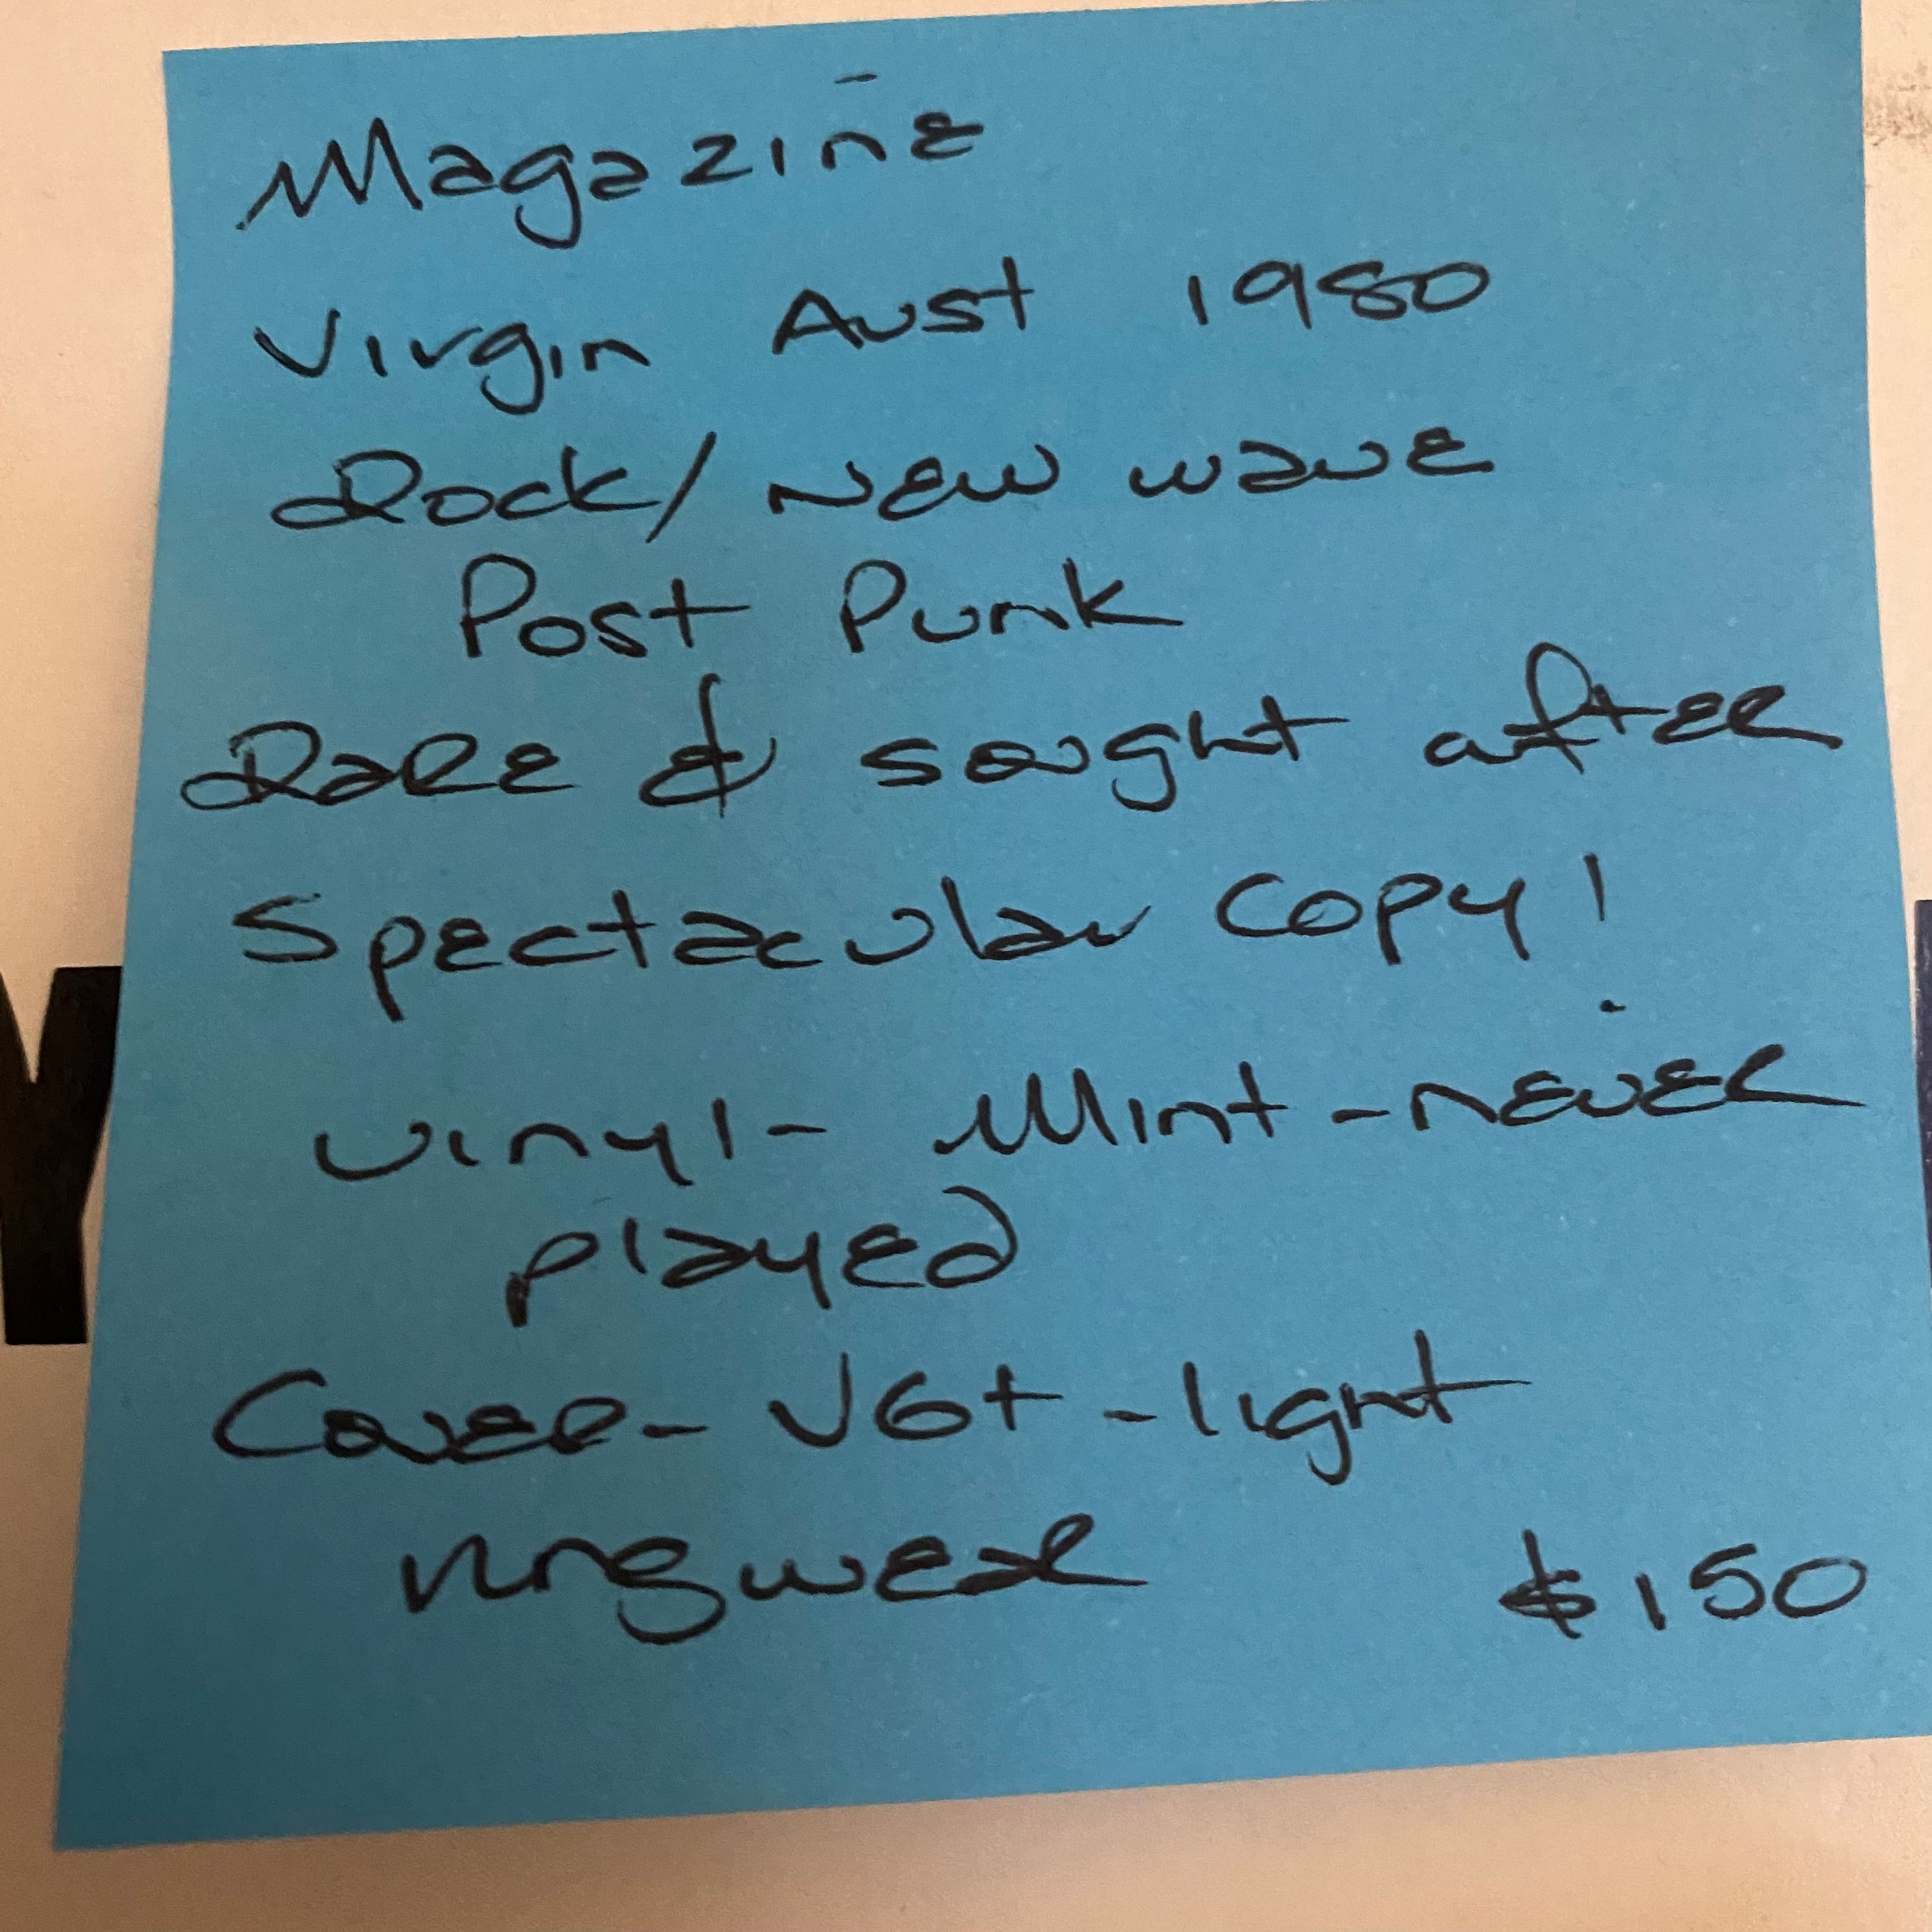 Magazine
Virgin Aust 1980
Rock/ New wave
Post Punk
Rare & sought after
Spectacular copy!
Vinyl- Mint - never
played
Cover- VG+ - light
ringwear $150
Y